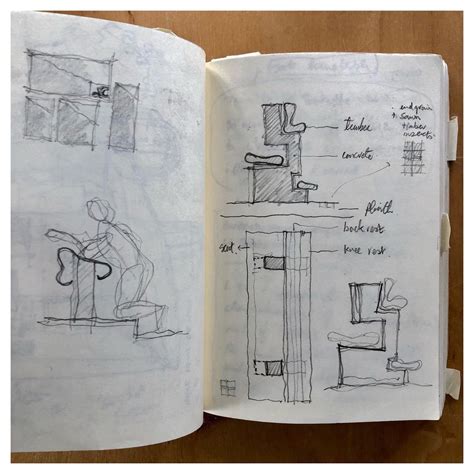 . end grain
+ sawn
timber
inserts
timber
concrete
plinth
back rest
seat
knee rest